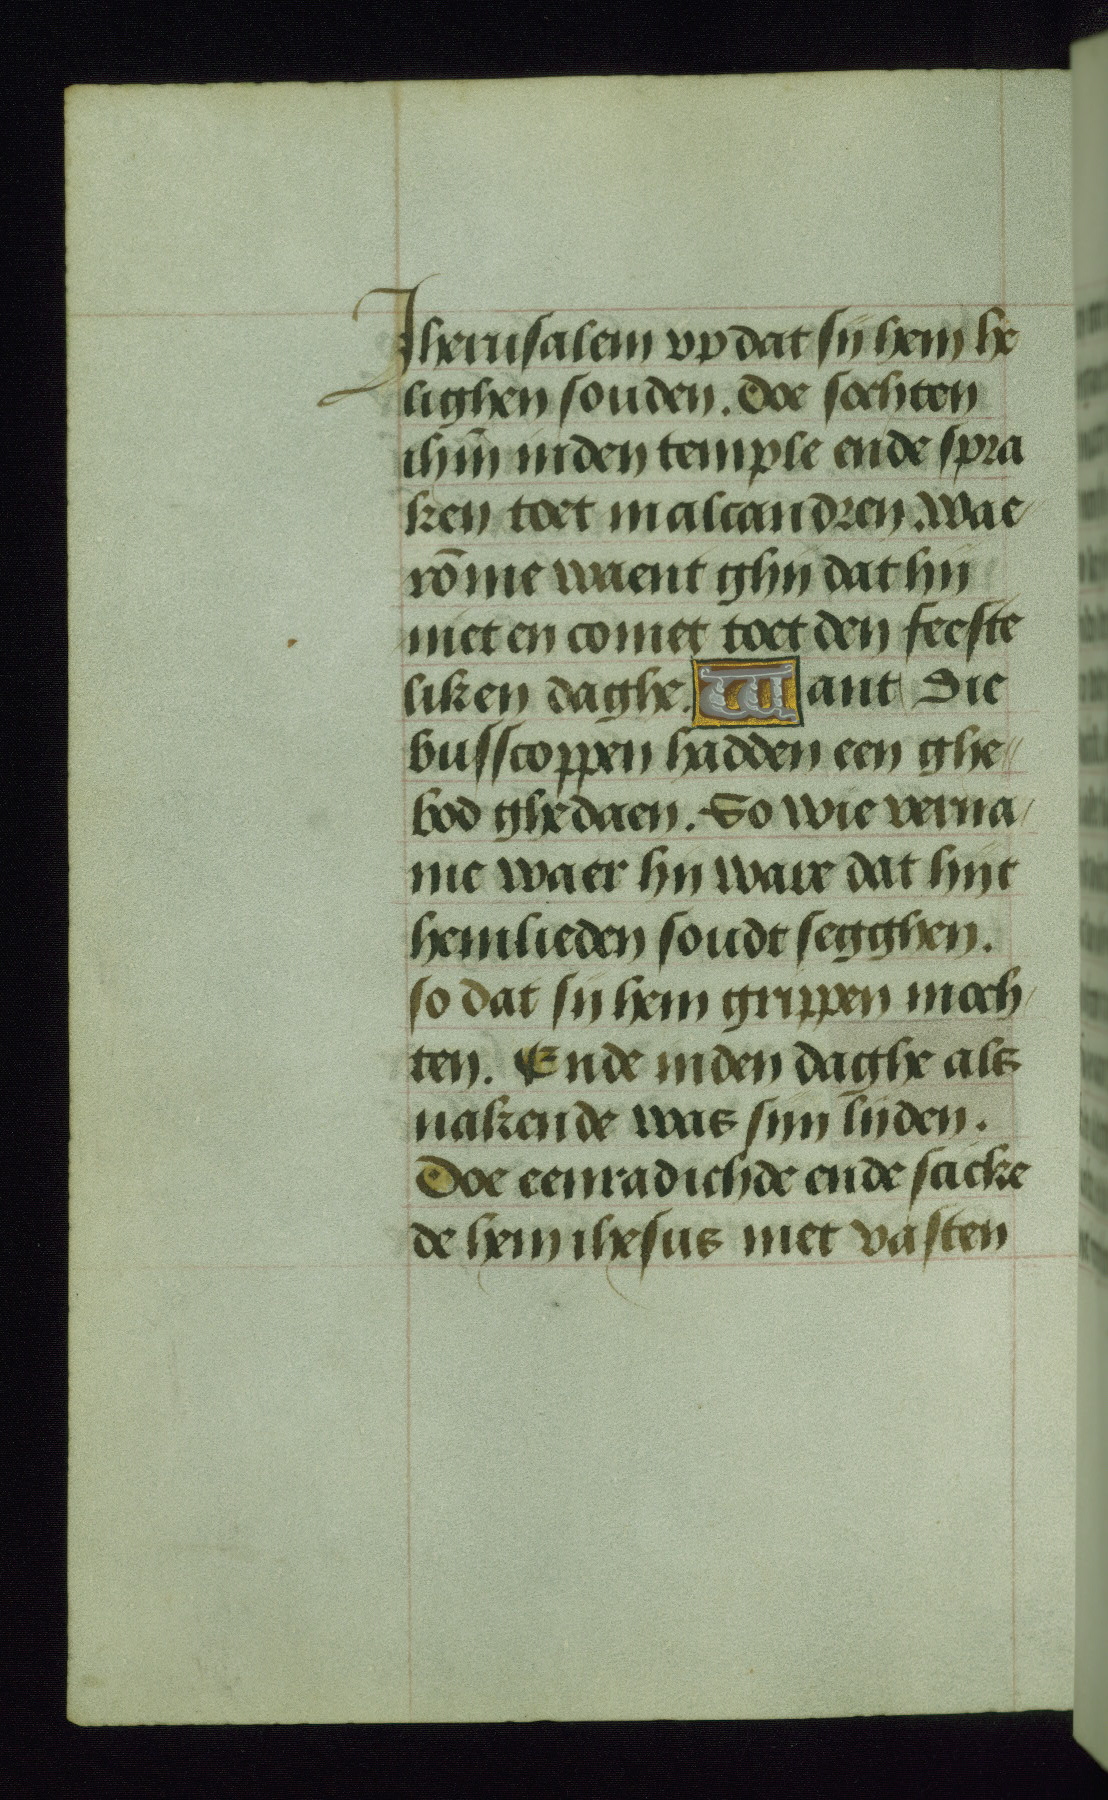 Jherusalem vp dat sij hem he
lighen souden. Doe sochten
ihm̄ inden temple ende spra
ken toet malcandren. wae
rō me waent ghij dat hij
niet en comet toet den feeste
liken daghe. Want Die
busscoppen hadden een ghe
bod ghedaen. So wie verna
me waer hij ware dat hijt
hemlieden soudt segghen.
so dat sij hem grippen moch
ten. Ende inden daghe als
nakende was sijn lijden.
Doe eenradichde ende sticke
de hem ihesus met vasten